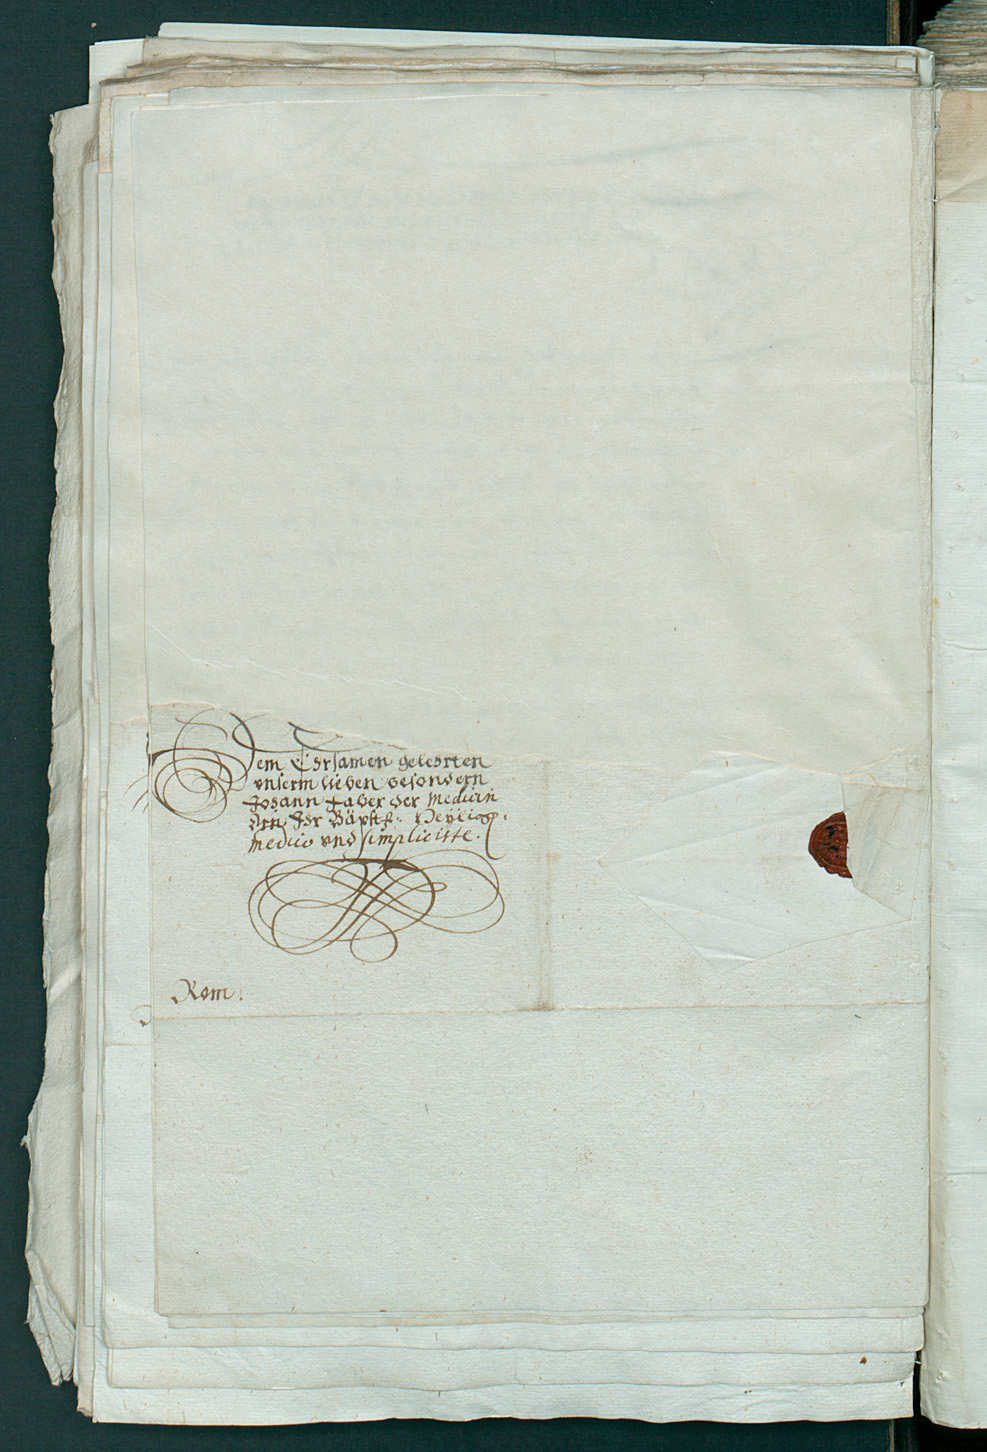 Dem Ersamen gelerten
vnserm lieben besondern
Johann Faber der Medicin
Drn Ihr Bäpstl: Heyligk.
Medico vnd simplicitte.
Rom.